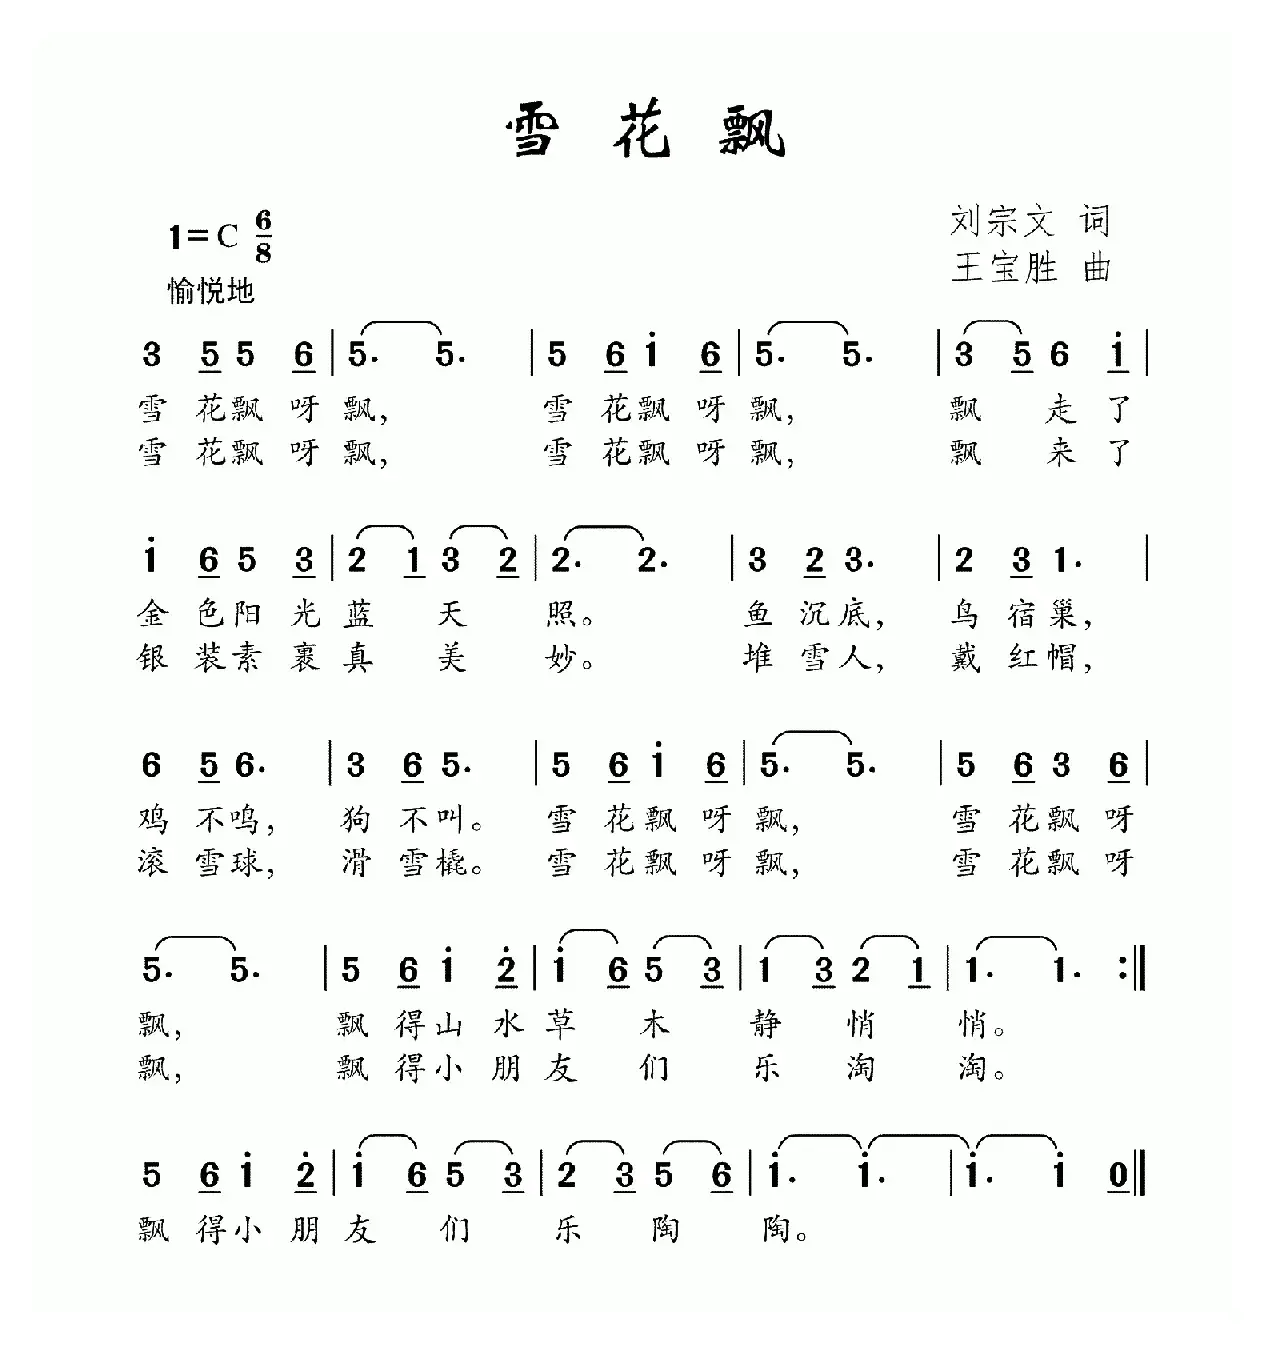 雪花飘
刘宗文 词
1=C 6/8
王宝胜 曲
愉悦地
3 5 5 6 | 5. 5. | 5 6 i 6 | 5. 5. | 3 5 6 i |
雪花飘呀飘, 雪花飘呀飘, 飘走了
雪花飘呀飘, 雪花飘呀飘, 飘来了
i 6 5 3 | 2 1 3 2 | 2. 2. | 3 2 3. | 2 3 1. |
金色阳光蓝天照。 鱼沉底, 鸟宿巢,
银装素裹真美妙。 堆雪人, 戴红帽,
6 5 6. | 3 6 5. | 5 6 i 6 | 5. 5. | 5 6 3 6 |
鸡不鸣, 狗不叫。 雪花飘呀飘, 雪花飘呀
滚雪球, 滑雪橇。 雪花飘呀飘, 雪花飘呀
5. 5. | 5 6 i 2̇ | i 6 5 3 | 1 3 2 1 | 1. 1. :||
飘, 飘得山水草木静悄悄。
飘, 飘得小朋友们乐淘淘。
5 6 i 2̇ | i 6 5 3 | 2 3 5 6 | i. i. | i. i 0 ||
飘得小朋友们乐陶陶。